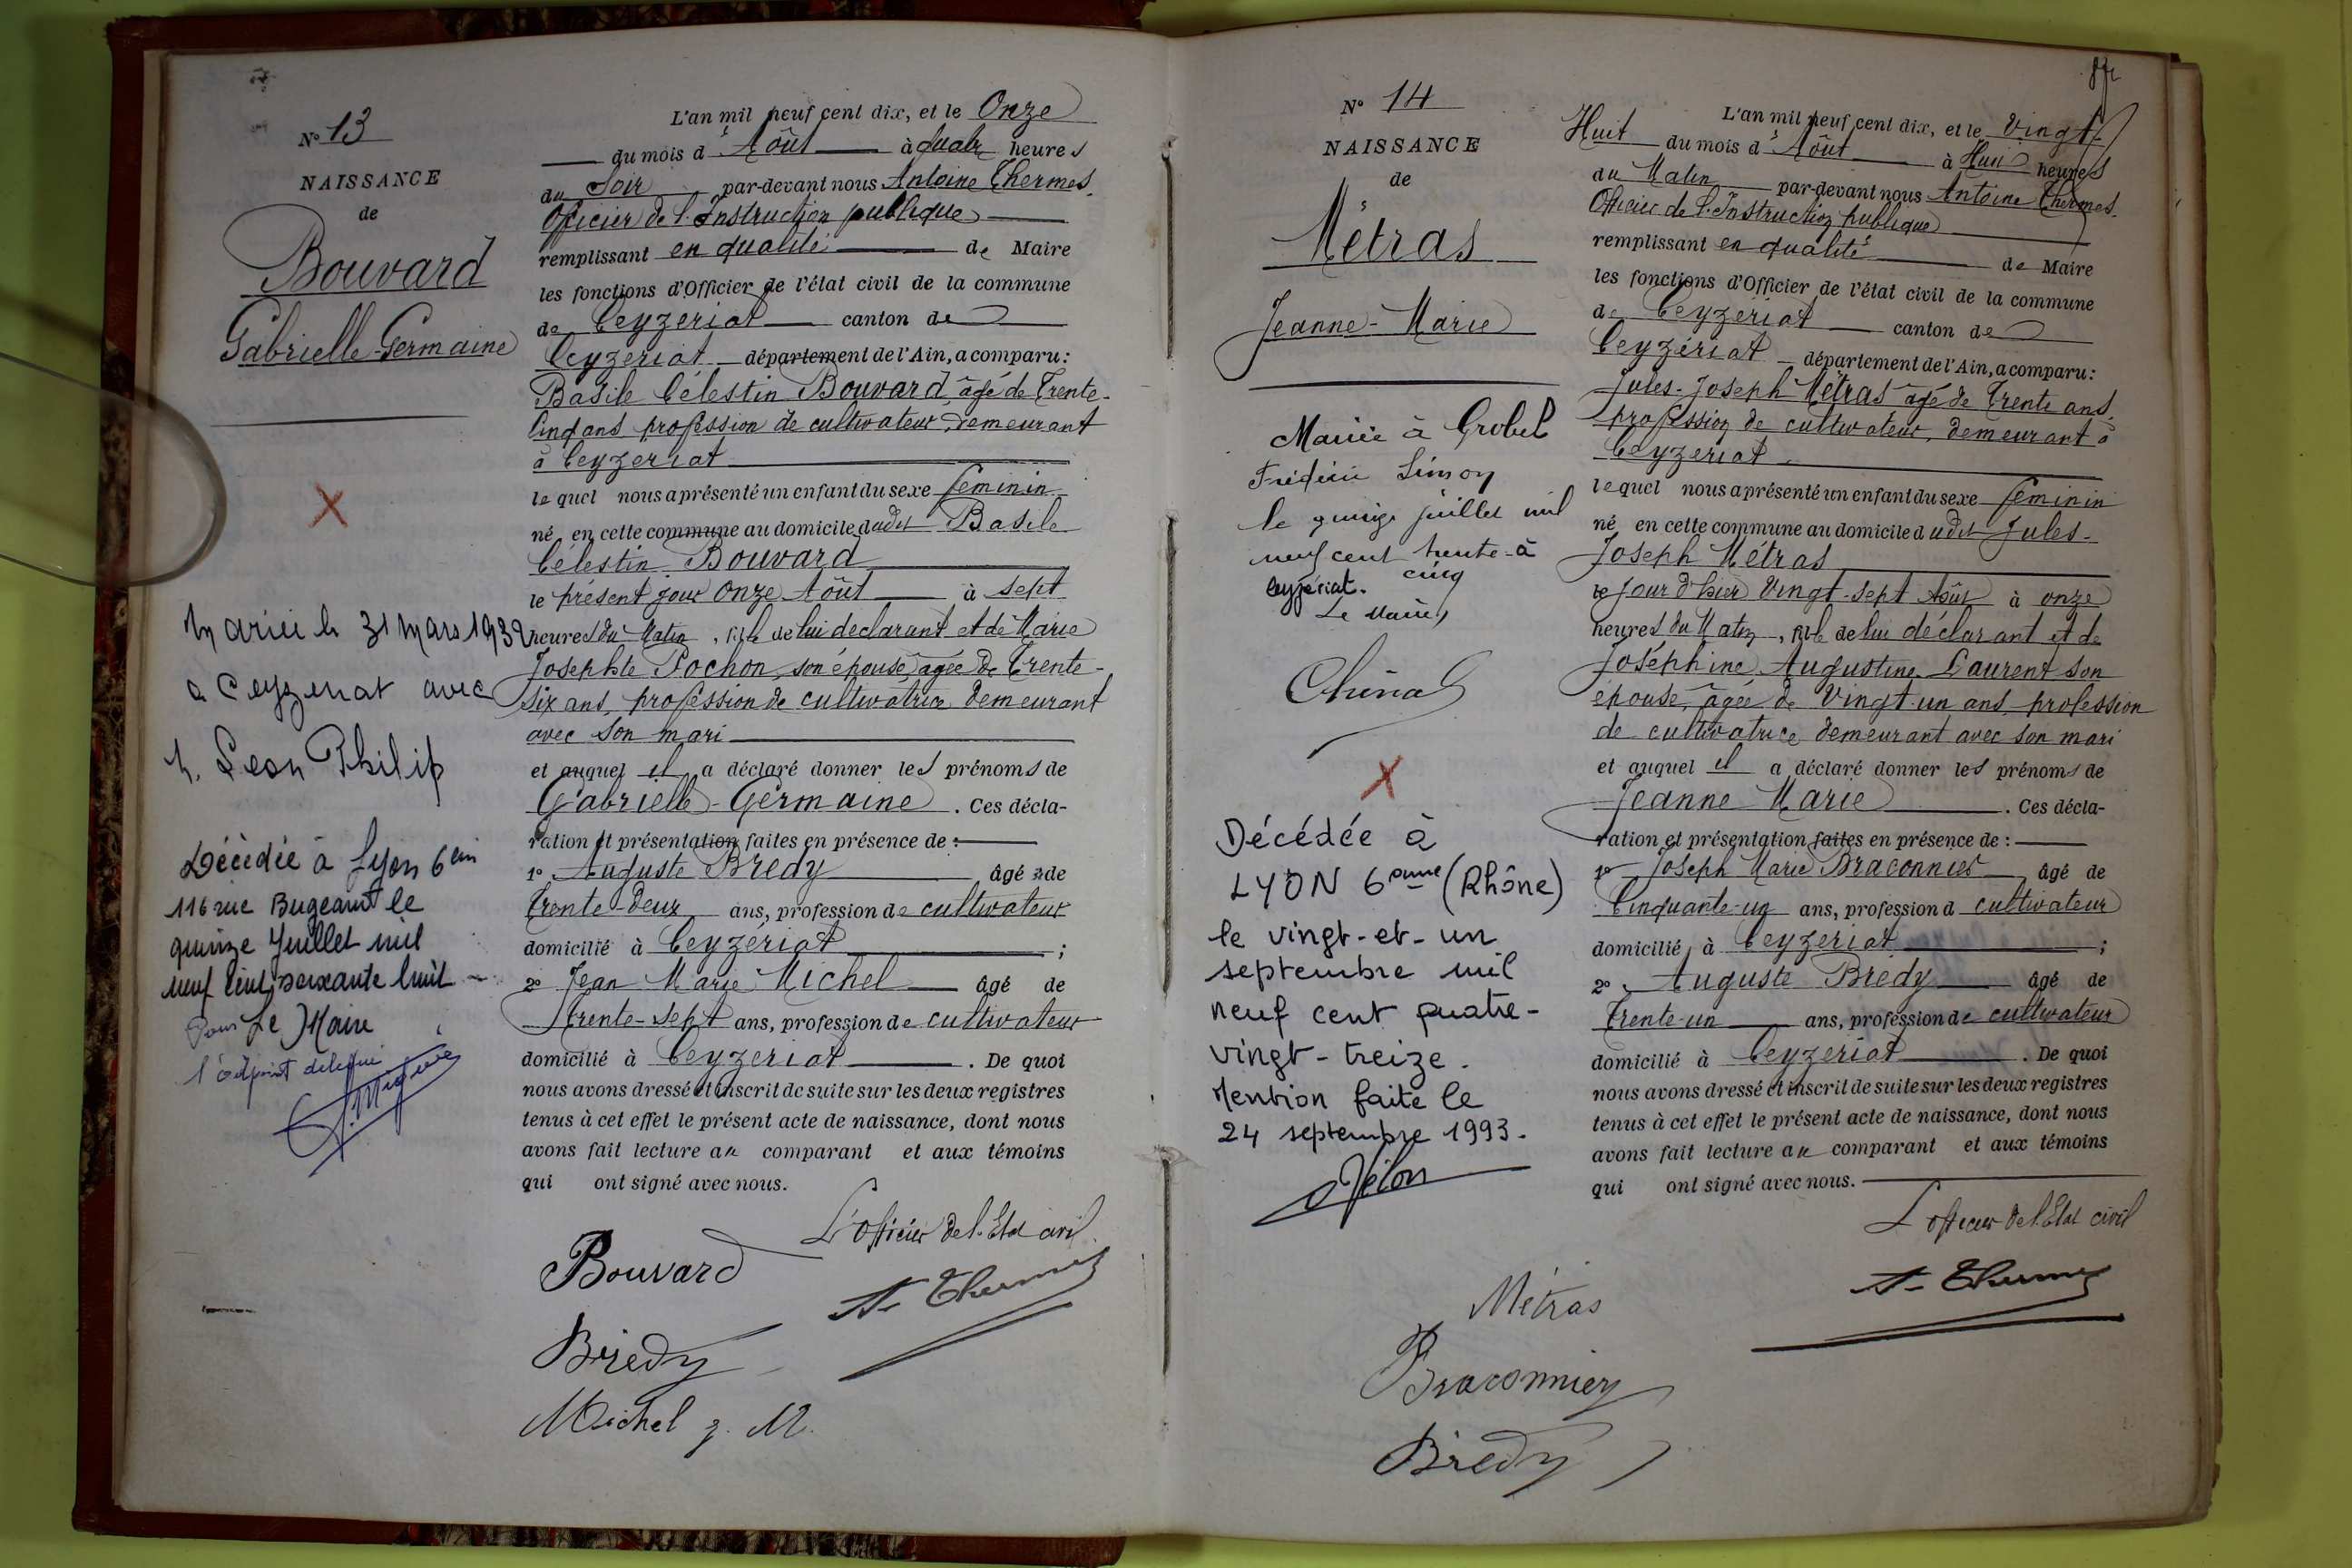 N° 13
NAISSANCE
de
Bouvard
Gabrielle-Germaine
Mariée le 31 mars 1932
a Ceyzeriat avec
M. Leon Philip
Décédée à Lyon 6em
116 rue Bugeaud le
quinze Juillet mil
neuf cent soixante huit
Pour Le Maire
l'adjoint délégué
L'an mil neuf cent dix, et le Onze
du mois d'Août à quatre heures
du Soir par-devant nous Antoine Thermes,
Officier de l'Instruction publique
remplissant en qualité de Maire
les fonctions d'Officier de l'état civil de la commune
de Ceyzeriat canton de
Ceyzeriat département de l'Ain, a comparu:
Basile Célestin Bouvard, âgé de Trente-
Cinq ans profession de cultivateur, demeurant
à Ceyzeriat
lequel nous a présenté un enfant du sexe féminin
né en cette commune au domicile dudit Basile
Célestin Bouvard
le présent jour Onze Août à sept
heures du Matin, fille de lui déclarant et de Marie
Josephte Pochon, son épouse, âgée de Trente-
six ans, profession de cultivatrice demeurant
avec son mari
et auquel il a déclaré donner les prénoms de
Gabrielle-Germaine. Ces décla-
ration et présentation faites en présence de :
1° Auguste Brédy âgé de
Trente-deux ans, profession de cultivateur
domicilié à Ceyzériat ;
2° Jean Marie Michel âgé de
Trente-sept ans, profession de cultivateur
domicilié à Ceyzeriat. De quoi
nous avons dressé et inscrit de suite sur les deux registres
tenus à cet effet le présent acte de naissance, dont nous
avons fait lecture au comparant et aux témoins
qui ont signé avec nous.
L'officier de l'Etat civil
Bouvard
A. Thermes
Brédy
Michel J. M.
N° 14
NAISSANCE
de
Métras
Jeanne-Marie
Mariée à Grobel
Frédéric Simon
le quinze juillet mil
neuf cent trente-à
cinq
Ceyzériat.
Le Maire,
Décédée à
LYON 6ème (Rhône)
le vingt-et-un
septembre mil
neuf cent quatre-
vingt-treize.
Mention faite le
24 septembre 1993.
L'an mil neuf cent dix, et le vingt-
Huit du mois d'Août à Huit heures
du Matin par-devant nous Antoine Thermes,
Officier de l'Instruction publique
remplissant en qualité de Maire
les fonctions d'Officier de l'état civil de la commune
de Ceyzériat canton de
Ceyzériat département de l'Ain, a comparu:
Jules-Joseph Métras âgé de Trente ans,
profession de cultivateur, demeurant à
Ceyzeriat.
lequel nous a présenté un enfant du sexe féminin
né en cette commune au domicile dudit Jules-
Joseph Métras
le jour d'hier Vingt-sept Août à onze
heures du Matin, fille de lui déclarant et de
Joséphine Augustine Laurent son
épouse, âgée de vingt-un ans, profession
de cultivatrice demeurant avec son mari
et auquel il a déclaré donner les prénoms de
Jeanne Marie. Ces décla-
ration et présentation faites en présence de :
1° Joseph Marie Braconnier âgé de
Cinquante-un ans, profession d cultivateur
domicilié à Ceyzeriat ;
2° Auguste Brédy âgé de
Trente-un ans, profession de cultivateur
domicilié à Ceyzeriat. De quoi
nous avons dressé et inscrit de suite sur les deux registres
tenus à cet effet le présent acte de naissance, dont nous
avons fait lecture au comparant et aux témoins
qui ont signé avec nous.
L'officier de l'Etat civil
A. Thermes
Métras
Braconnier
Brédy